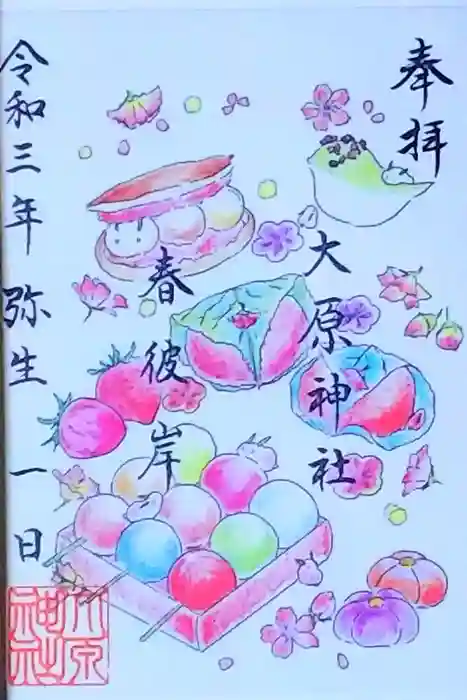 奉拝
大原神社
春彼岸
令和三年弥生一日
大原
神社